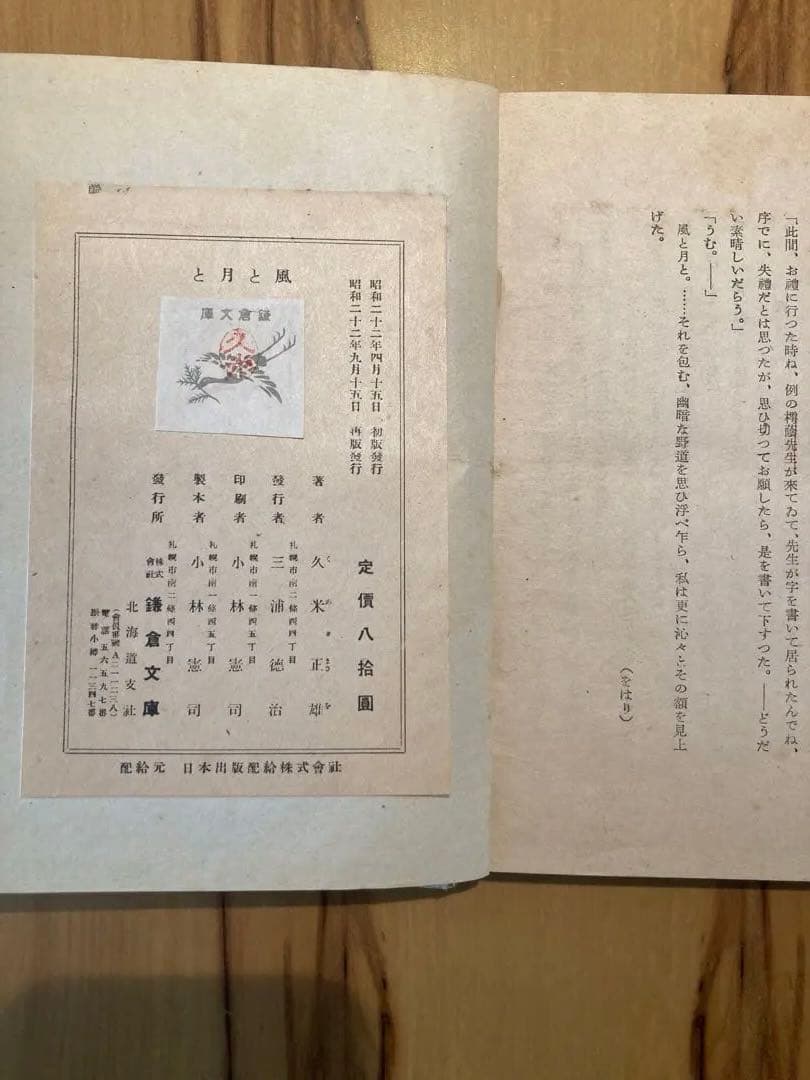 「此間、お禮に行つた時ね、例の樗蔭先生が來てゐて、先生が字を書いて居られたんでね、
序でに、失禮だとは思つたが、思ひ切つてお願したら、是を書いて下すつた。――どうだ
い素晴しいだらう。」
「うむ。――」
風と月と。……それを包む、幽暗な野道を思ひ浮べ乍ら、私は更に沁々とその額を見上
げた。
(をはり)
風と月と
鎌倉文庫
昭和二十二年四月十五日 初版發行
昭和二十二年九月十五日 再版發行
定價八拾圓
著者 久米正雄
くめまさを
札幌市南二條西四丁目
發行者 三浦德治
札幌市南一條西五丁目
印刷者 小林憲司
札幌市南一條西五丁目
製本者 小林憲司
札幌市南二條西四丁目
發行所 株式會社 鎌倉文庫
北海道支社
(會員番號A二一一二三八)
電話五六五九七番
振替小樽一二三四七番
配給元 日本出版配給株式會社